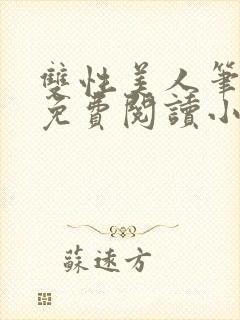 雙性美人筆
免費閱讀小
蘇遠方